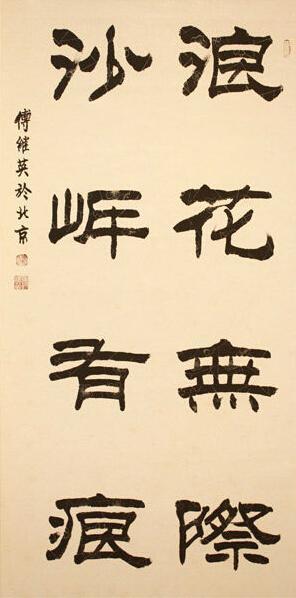 浪花無際
沙岸有痕
傅繼英於北京